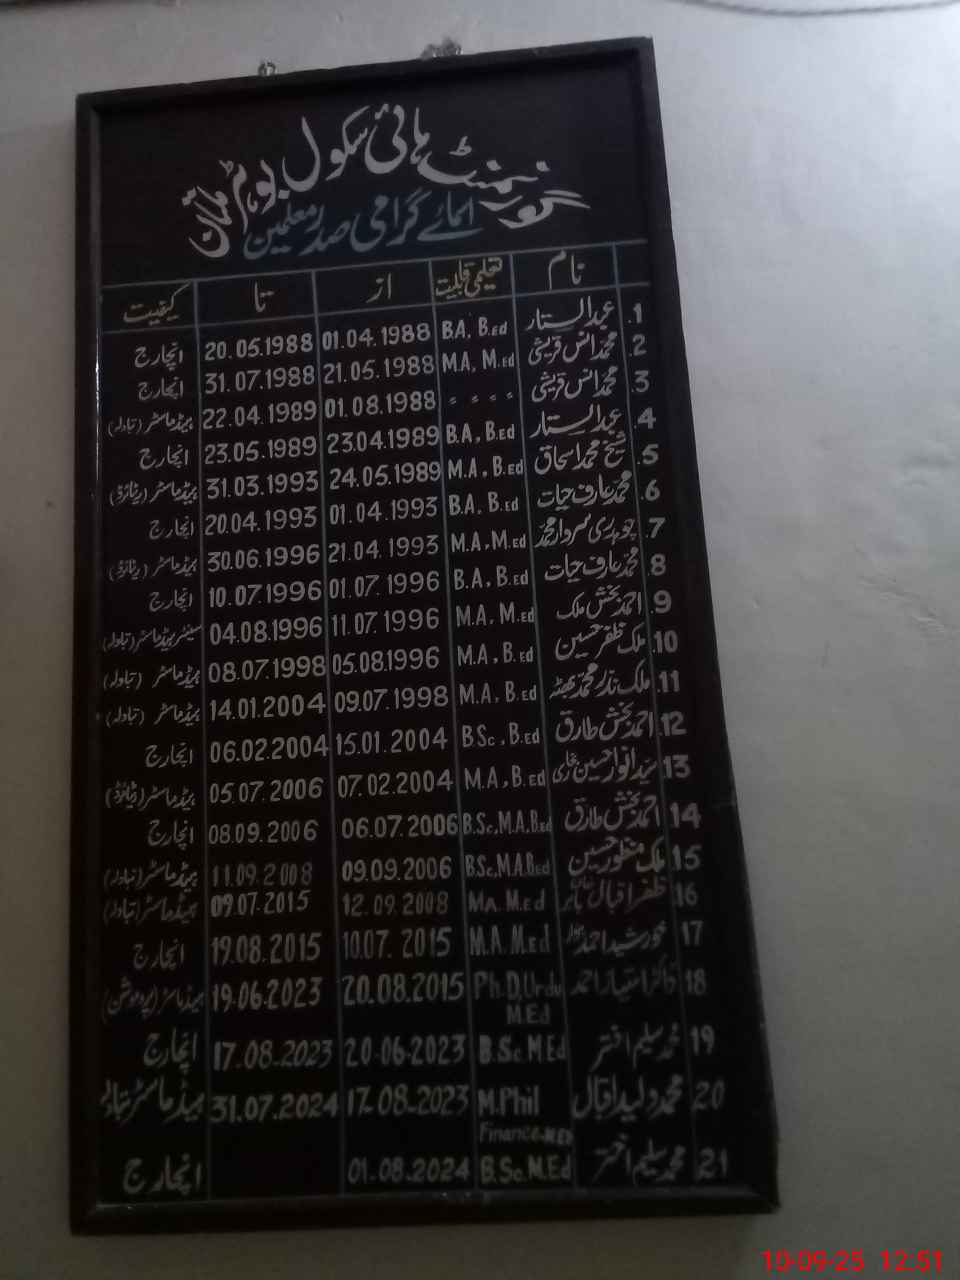 گورنمنٹ ہائی سکول بوہڑ ملتان
اسمائے گرامی صدر معلمین
نام تعلیمی قابلیت از تا کیفیت
1. عبدالستار B.A, B.Ed 01.04.1988 20.05.1988 انچارج
2. محمد انس قریشی M.A, M.Ed 21.05.1988 31.07.1988 انچارج
3. محمد انس قریشی " " " " 01.08.1988 22.04.1989 ہیڈ ماسٹر (تبادلہ)
4. عبدالستار B.A, B.Ed 23.04.1989 23.05.1989 انچارج
5. شیخ محمد اسحاق M.A, B.Ed 24.05.1989 31.03.1993 ہیڈ ماسٹر (ریٹائرڈ)
6. محمد عارف حیات B.A, B.Ed 01.04.1993 20.04.1993 انچارج
7. چوہدری سردار محمد M.A, M.Ed 21.04.1993 30.06.1996 ہیڈ ماسٹر (ریٹائرڈ)
8. محمد عارف حیات B.A, B.Ed 01.07.1996 10.07.1996 انچارج
9. احمد بخش ملک M.A, M.Ed 11.07.1996 04.08.1996 سینئر ہیڈ ماسٹر (تبادلہ)
10. ملک ظفر حسین M.A, B.Ed 05.08.1996 08.07.1998 ہیڈ ماسٹر (تبادلہ)
11. ملک نذر محمد بھٹہ M.A, B.Ed 09.07.1998 14.01.2004 ہیڈ ماسٹر (تبادلہ)
12. احمد بخش طارق B.Sc, B.Ed 15.01.2004 06.02.2004 انچارج
13. سید انوار حسین بخاری M.A, B.Ed 07.02.2004 05.07.2006 ہیڈ ماسٹر (ریٹائرڈ)
14. احمد بخش طارق B.Sc, M.A, B.Ed 06.07.2006 08.09.2006 انچارج
15. ملک منظور حسین B.Sc, M.A, B.Ed 09.09.2006 11.09.2008 ہیڈ ماسٹر (تبادلہ)
16. ظفر اقبال MA. M.Ed 12.09.2008 09.07.2015 ہیڈ ماسٹر (تبادلہ)
17 خورشید احمد M.A. M.Ed 10.07.2015 19.08.2015 انچارج
18 ڈاکٹر امتیاز احمد Ph.D, Urdu M.Ed 20.08.2015 19.06.2023 ہیڈ ماسٹر (پروموشن)
19 محمد سلیم اختر B.Sc M.Ed 20-06-2023 17.08.2023 انچارج
20 محمد ولید اقبال M.Phil Finance, M.Ed 17-08-2023 31.07.2024 ہیڈ ماسٹر تبادلہ
21 محمد سلیم اختر B.Sc. M.Ed 01.08.2024 انچارج
10-09-25 12:51